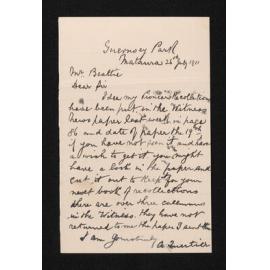 Guernsey Park
Mataura 26th July 1911
Mr Beattie
Dear Sir
I see my Pioneer Recollections
have been put in the Witness
Newspaper last week in page
86 and date of paper the 19th
if you have not seen it and have
a wish to get it you might
have a look in the paper and
cut it out to keep for your
next book of recollections
there are over three cullumns
in the Witness. they have not
returned to me the paper I sent them
I am yours truly